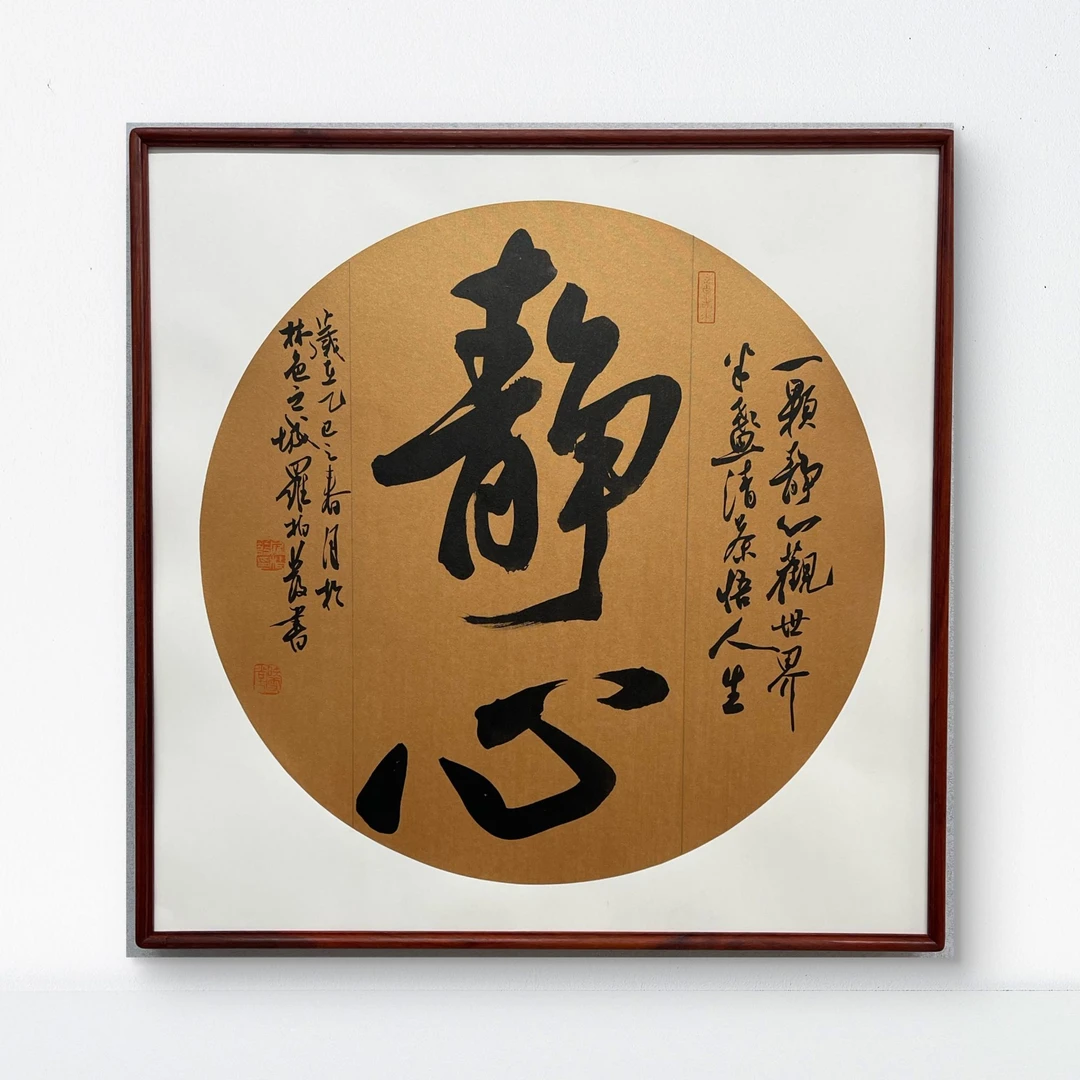 一顆静心觀世界
半盞清茶悟人生
静心
歲在乙巳之春月於
林邑之城羅柏書